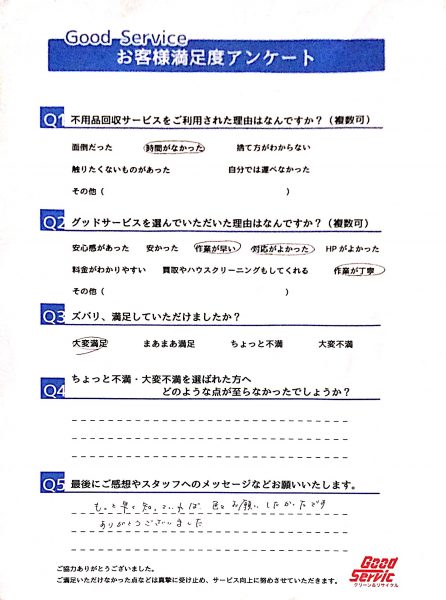 Good Service
お客様満足度アンケート
Q1 不用品回収サービスをご利用された理由はなんですか？（複数可）
面倒だった 時間がなかった 捨て方がわからない
触りたくないものがあった 自分では運べなかった
その他（ ）
Q2 グッドサービスを選んでいただいた理由はなんですか？（複数可）
安心感があった 安かった 作業が早い 対応がよかった HPがよかった
料金がわかりやすい 買取やハウスクリーニングもしてくれる 作業が丁寧
その他（ ）
Q3 ズバリ、満足していただけましたか？
大変満足 まあまあ満足 ちょっと不満 大変不満
Q4 ちょっと不満・大変不満を選ばれた方へ
どのような点が至らなかったでしょうか？
Q5 最後にご感想やスタッフへのメッセージなどお願いいたします。
もっと早く知っていれば 色々お願いしたかったです
ありがとうございました
ご協力ありがとうございました。
ご満足いただけなかった点などは真摯に受け止め、サービス向上に努めさせていただきます。
Good
Servic
クリーン&リサイクル